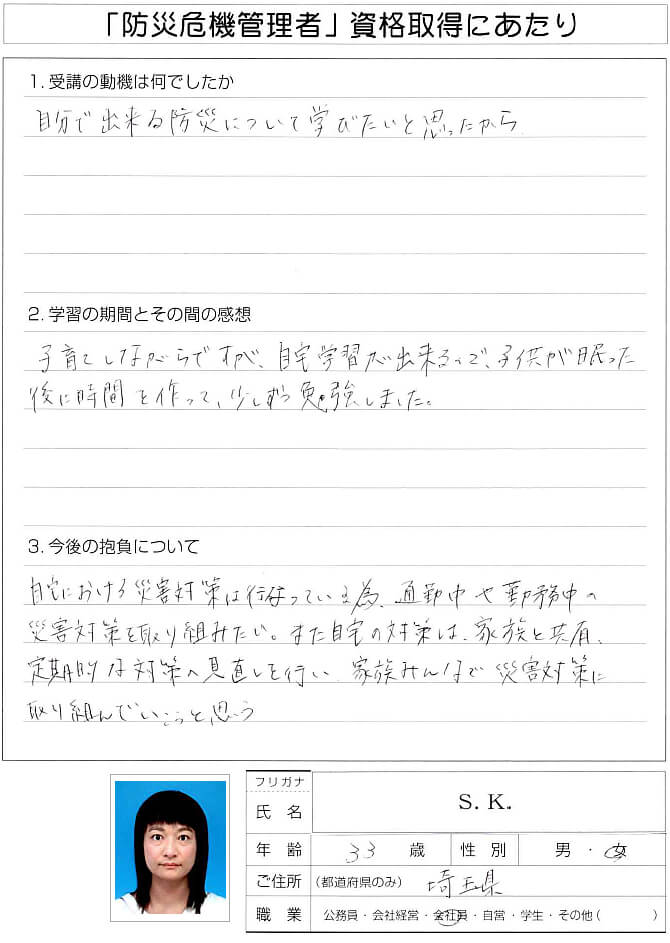 「防災危機管理者」資格取得にあたり
1. 受講の動機は何でしたか
自分で出来る防災について学びたいと思ったから
2. 学習の期間とその間の感想
子育てしながらですが、自宅学習が出来るので、子供が眠った
後に時間を作って、少しずつ勉強しました。
3. 今後の抱負について
自宅における災害対策は行なっている為、通勤中や勤務中の
災害対策を取り組みたい。また自宅の対策は、家族と共有、
定期的な対策へ見直しを行い、家族みんなで災害対策に
取り組んでいこうと思う
フリガナ
氏名 S. K.
年齢 33 歳 性別 男・女
ご住所 (都道府県のみ) 埼玉県
職業 公務員・会社経営・会社員・自営・学生・その他( )